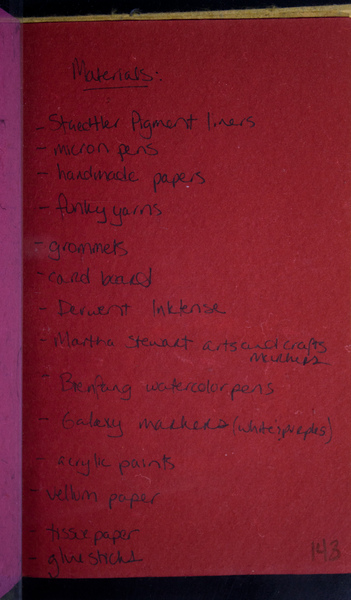 Materials:
- Staedtler Pigment liners
- micron pens
- handmade papers
- funky yarns
- grommets
- card board
- Derwent Inktense
- Martha Stewart arts and crafts
markers
- Bienfang watercolor pens
- Galaxy markers (white, purples)
- acrylic paints
- vellum paper
- tissue paper
- glue sticks
143